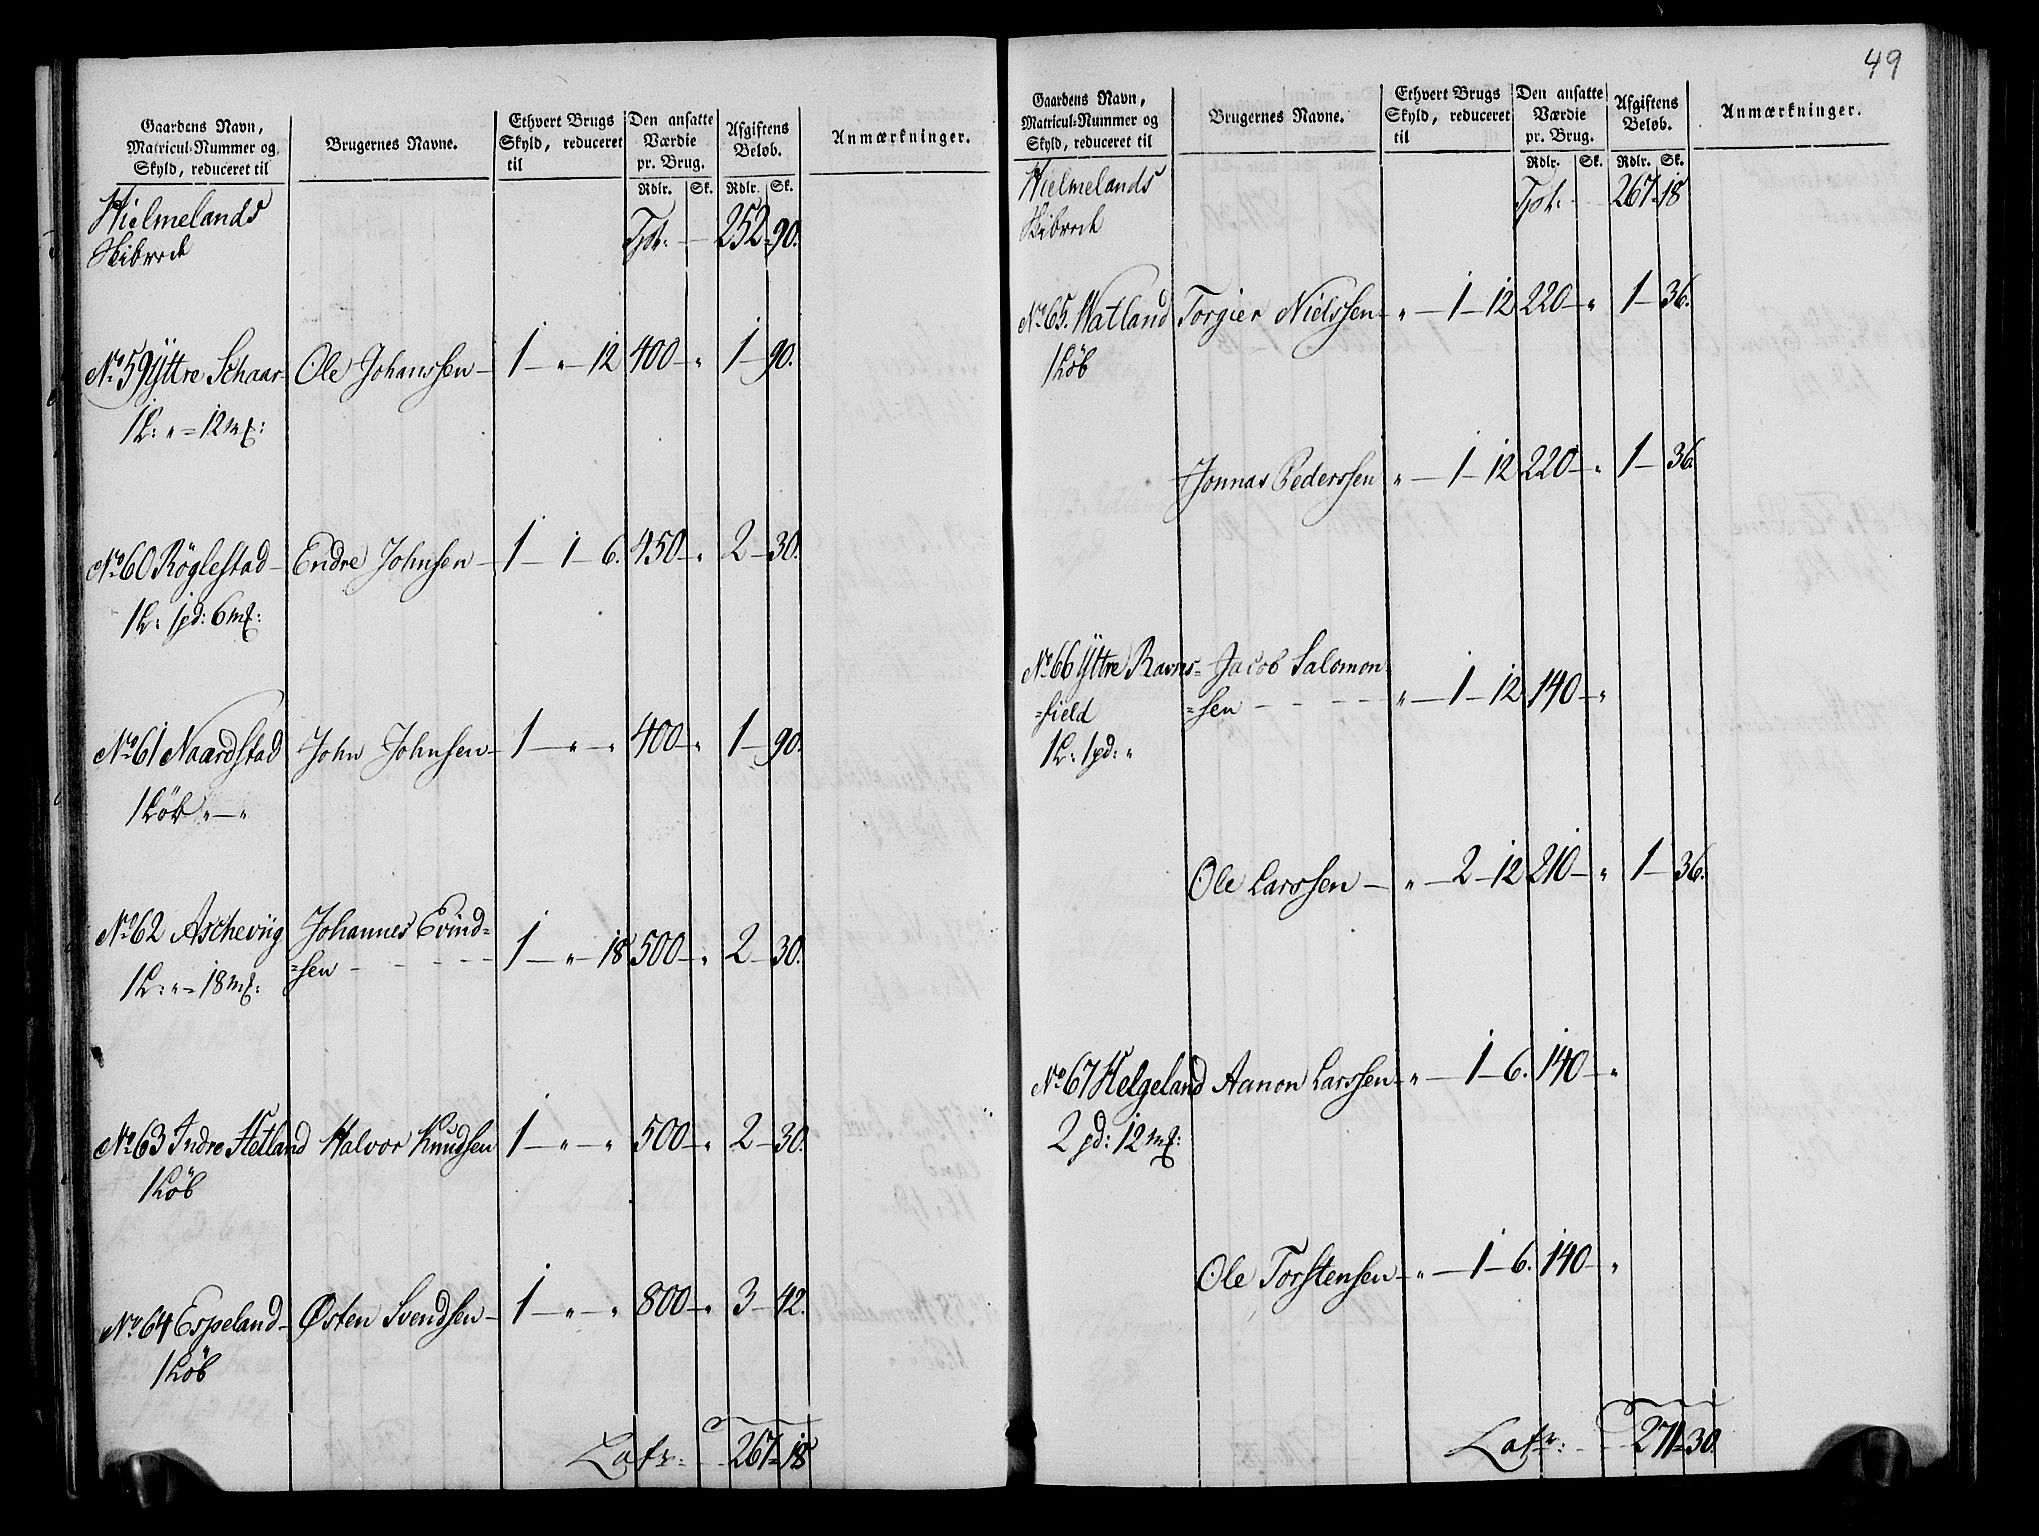 Gaardens Navn,
Matricul-Nummer og
Skyld, reduceret til
Brugernes Navne.
Ethvert Brugs
Skyld, reduceret
til
Den ansatte
Værdie
pr. Brug.
Afgiftens
Beløb.
Anmærkninger.
Rdlr. Sk. Rdlr. Sk.
Hielmelands
Skibrede
Tpt: 252 = 90.
No. 59 Ÿttre Schaar Ole Johanssen 1 — " — 12 400 — " 1 — 90.
1 L: " = 12 mf:
No. 60 Röglestad Endre Johnsen 1 — 1 6. 450 — " 2 — 30.
1 L: 1 pd: 6 mf:
No. 61 Naardstad John Johnsen 1 — " — " 400 — " 1 — 90.
1 Löb " — "
No. 62 Aschevиg Johannes Evind=
=sen 1 — " — 18 500 — " 2 — 30.
1 L: " = 18 mf:
No. 63 Indre Hetland Halvor Knudsen 1 — " — " 500 — " 2 — 30.
1 Löb
No. 64 Espeland Østen Svendsen 1 — " — " 800 — " 3 — 42.
1 Löb
Latr: 267 = 18
49
Gaardens Navn,
Matricul-Nummer og
Skyld, reduceret til
Brugernes Navne.
Ethvert Brugs
Skyld, reduceret
til
Den ansatte
Værdie
pr. Brug.
Afgiftens
Beløb.
Anmærkninger.
Rdlr. Sk. Rdlr. Sk.
Hielmelands
Skibrede
Tpt: 267 = 18
No. 65. Watland Torgier Nielssen " — 1 — 12 220 — " 1 — 36.
1 Löb
Jonnas Pederssen " — 1 — 12 220 — " 1 — 36.
No. 66 Ÿttre Ravns= Jacob Salomon
=field =sen " — 1 — 12 140 — "
1 L: 1 pd: "
Ole Larssen " — 2 — 12 210 — " 1 — 36.
No. 67 Helgeland Aanon Larssen " — 1 — 6. 140 — "
2 pd: 12 mf:
Ole Torstensen " — 1 — 6. 140 — "
Latr: 271 = 30.